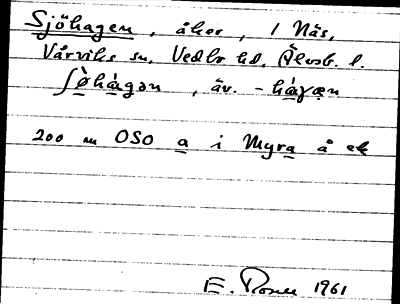 Sjöhagen, åker, 1 Näs,
Vårviks sn, Vedbo hd, Älvsb. l.
ʃö̀hágən, äv. -háγən
200 m OSO a i Myra å ek
E. 1961